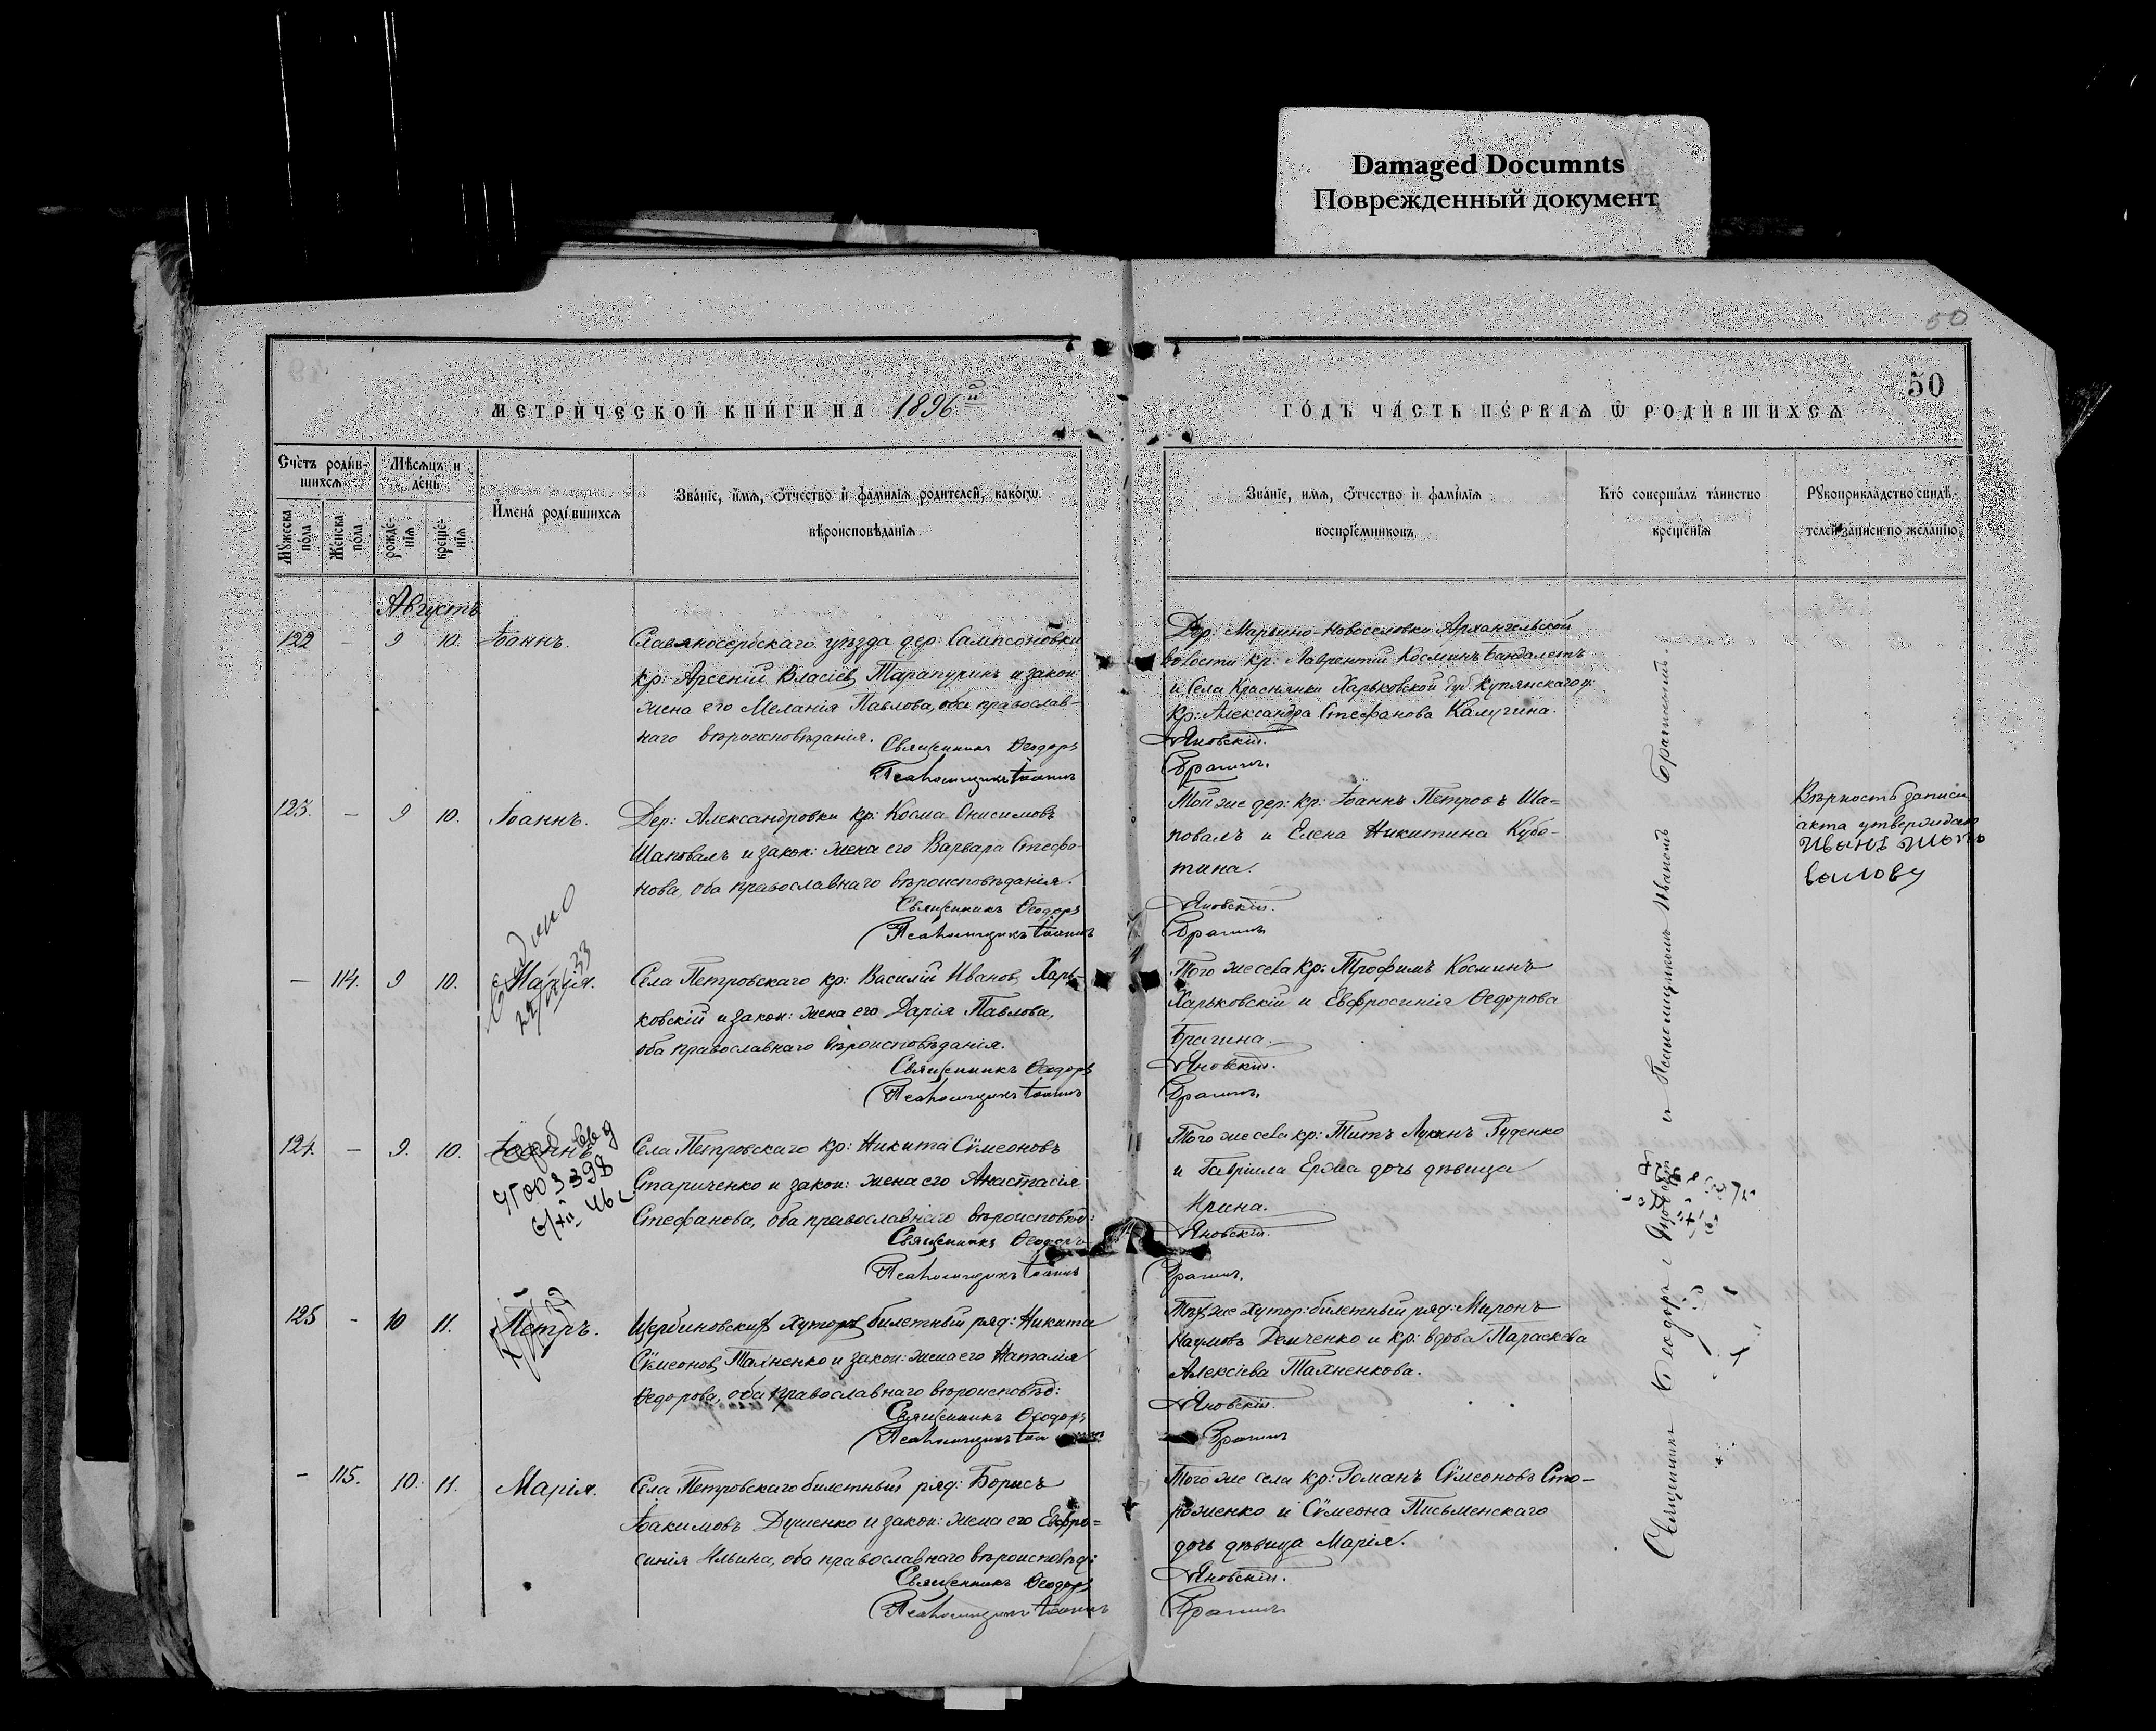 Damaged Documnts
Поврежденный документ
50
50
МЕТРИ́ЧЕСКОЙ КНИ́ГИ НА 1896й
ГО́ДЪ ЧА́СТЬ ПЕ́РВАѦ Ѡ РОДИ́ВШИХСѦ
Сче́тъ роди́в-
шихсѧ
Мꙋ́жеска по́ла
Же́нска по́ла
Мѣ́сѧцъ и
де́нь
рожде́-
нїѧ
креще́-
нїѧ
И҆мена̀ роди́вшихсѧ
Зва́нїе, и҆́мѧ, ѻ҆́тчество и҆ фами́лїѧ роди́телей, како́гѡ
вѣроисповѣ́данїѧ
Зва́нїе, и҆́мѧ, ѻ҆́тчество и҆ фами́лїѧ
воспрїе́мниковъ
Кто̀ соверша́лъ та́инство
креще́нїѧ
Рꙋкоприкла́дство свидѣ́-
телей за́писи по жела́нїю
Августъ
122 - 9 10. Іоаннъ.
Славяносербскаго уѣзда дер: Сампсоновки
кр: Арсеній Власіевъ Тарапуринъ и закон:
жена его Меланія Павлова, оба православ-
наго вѣроисповѣданія.
Священникъ Ѳеодоръ
Псаломщикъ Іоаннъ
Дер: Марьино-Новоселовки Архангельской
волости кр: Лаврентій Косминъ Бандалетъ
и Села Краснянки Харьковской губ: Купянскаго у:
кр: Александра Стефанова Калугина.
Яновскій.
Брагинъ.
123. - 9 10. Іоаннъ.
Дер: Александровки кр: Косма Онисимовъ
Шаповалъ и закон: жена его Варвара Стефа-
нова, оба православнаго вѣроисповѣданія.
Священникъ Ѳеодоръ
Псаломщикъ Іоаннъ
Той же дер: кр: Іоаннъ Петровъ Ша=
повалъ и Елена Никитина Кубо-
тина.
Яновскій.
Брагинъ
Вѣрность записи
акта утверждаю
Иванъ
— 114. 9 10. Марія.
33
Села Петровскаго кр: Василій Ивановъ Харь-
ковскій и закон: жена его Дарія Павлова,
оба православнаго вѣроисповѣданія.
Священникъ Ѳеодоръ
Псаломщикъ Іоаннъ
Того же села кр: Трофимъ Косминъ
Харьковскій и Евфросинія Ѳедорова
Брагина.
Яновскій.
Брагинъ.
124. - 9. 10. Іоаннъ
Села Петровскаго кр: Никита Сѵмеоновъ
Стариченко и закон: жена его Анастасія
Стефанова, оба православнаго вѣроисповѣд:
Священникъ Ѳеодоръ
Псаломщикъ Іоаннъ
Того же села кр: Титъ Лукинъ Руденко
и Гавріила Ерма дочь дѣвица
Ирина.
Яновскій.
Брагинъ.
125 - 10 11. Петръ.
Щербиновскихъ хуторовъ билетный ряд: Никита
Сѵмеоновъ Тахненко и закон: жена его Наталія
Ѳедорова, оба православнаго вѣроисповѣд:
Священникъ Ѳеодоръ
Псаломщикъ
Тѣхже хутор: билетный ряд: Миронъ
Наумовъ Демченко и кр: вдова Параскева
Алексіева Тахненкова.
Яновскій.
Брагинъ
- 115. 10. 11. Марія.
Села Петровскаго билетный ряд: Борисъ
Іоакимовъ Душенко и закон: жена его Евфро=
синія Ильина, оба православнаго вѣроисповѣд:
Священникъ Ѳеодоръ
Псаломщикъ Іоаннъ
Того же села кр: Романъ Сѵмеоновъ Сто-
роженко и Сѵмеона Письменскаго
дочь дѣвица Марія.
Яновскій.
Брагинъ
Священникъ Ѳеодоръ Яновскій и Псаломщикомъ Иваномъ Брагинымъ.